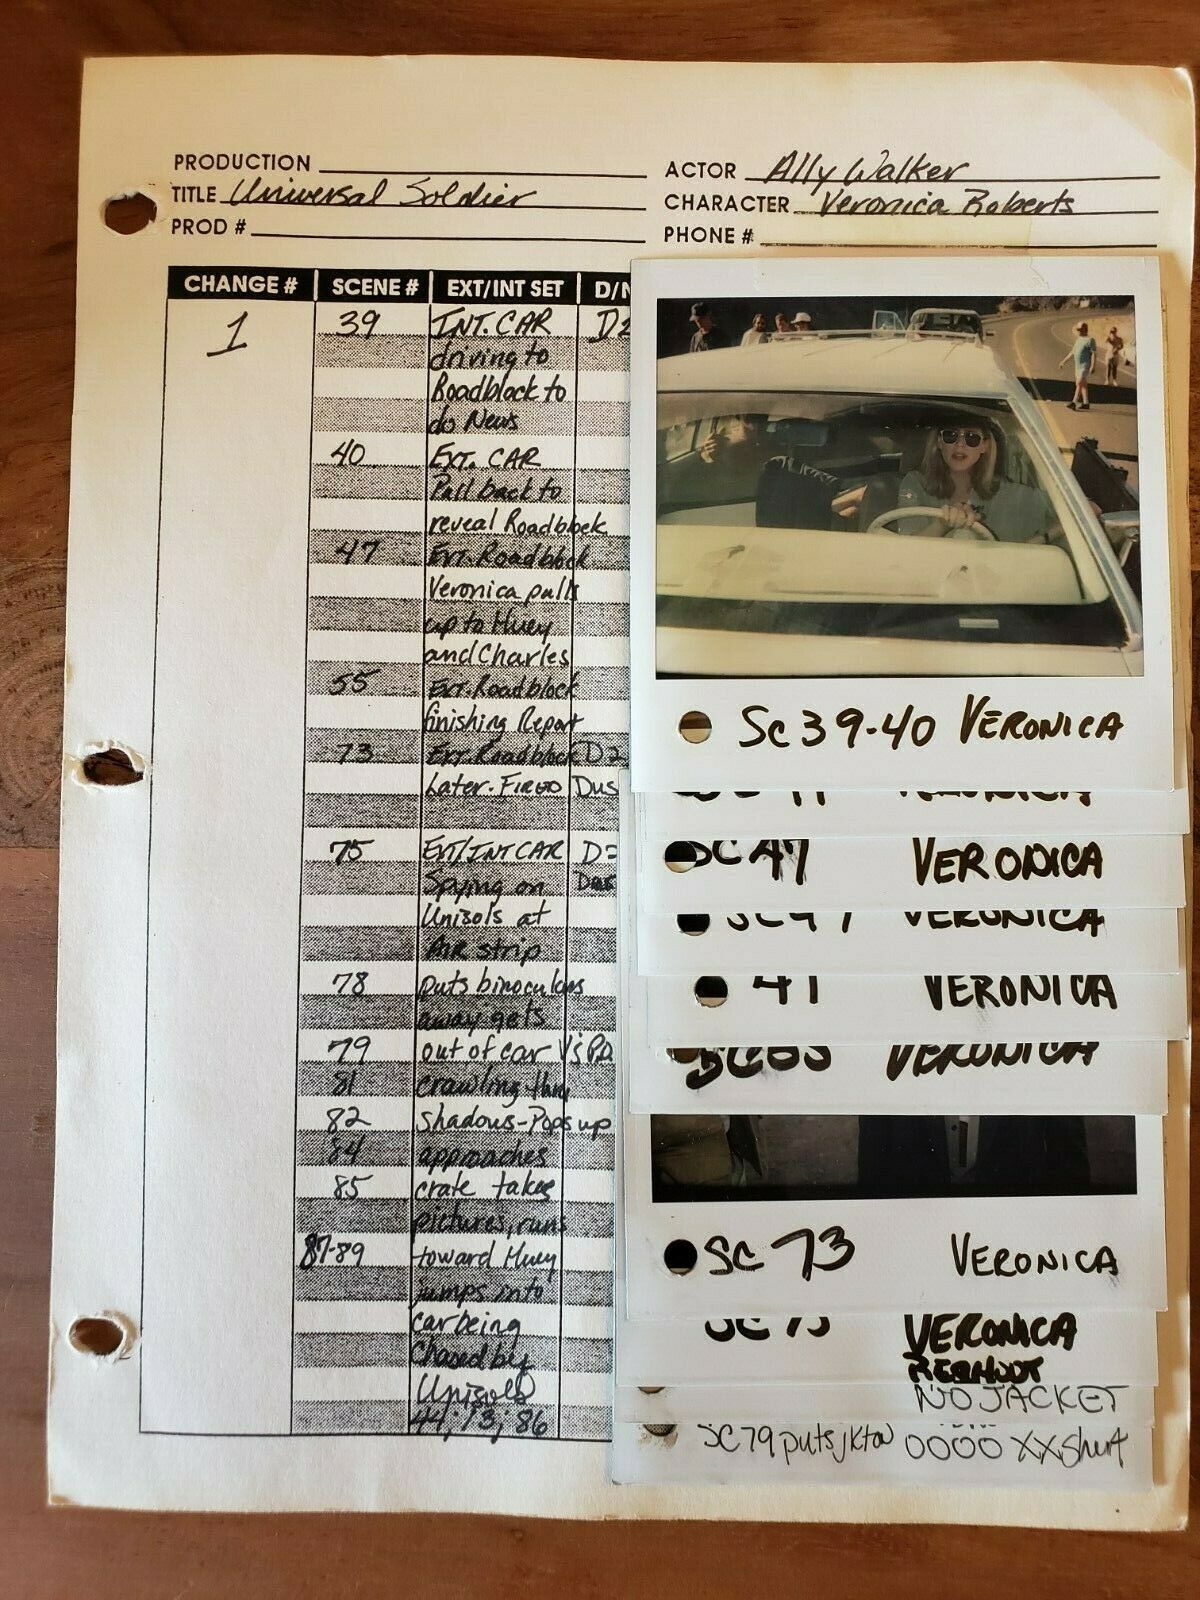 PRODUCTION
TITLE Universal Soldier
PROD #
ACTOR Ally Walker
CHARACTER Veronica Roberts
PHONE #
CHANGE # SCENE # EXT/INT SET D/N
1 39 INT. CAR D2
driving to
Roadblock to
do News
40 EXT. CAR
Pull back to
reveal Roadblock
47 EXT. Roadblock
Veronica pulls
up to Huey
and Charles
55 EXT. Roadblock
finishing Report
73 EXT. Roadblock D2
Later. FIRED Dus
75 EXT/INT CAR D
Spying on Dus
Unisols at
AIR strip
78 puts binoculars
away gets
79 out of car V's P.O.
81 crawling thru
82 shadows-Pops up
84 approaches
85 crate takes
pictures, runs
87-89 toward Huey
jumps into
car being
chased by
Unisols
44, 13, 86
SC 39-40 VERONICA
VERONICA
SC 47 VERONICA
SC 47 VERONICA
47 VERONICA
VERONICA
SC 73 VERONICA
SC 73 VERONICA
RESHOOT
NO JACKET
SC 79 puts jkt on 0000 XX Shirt